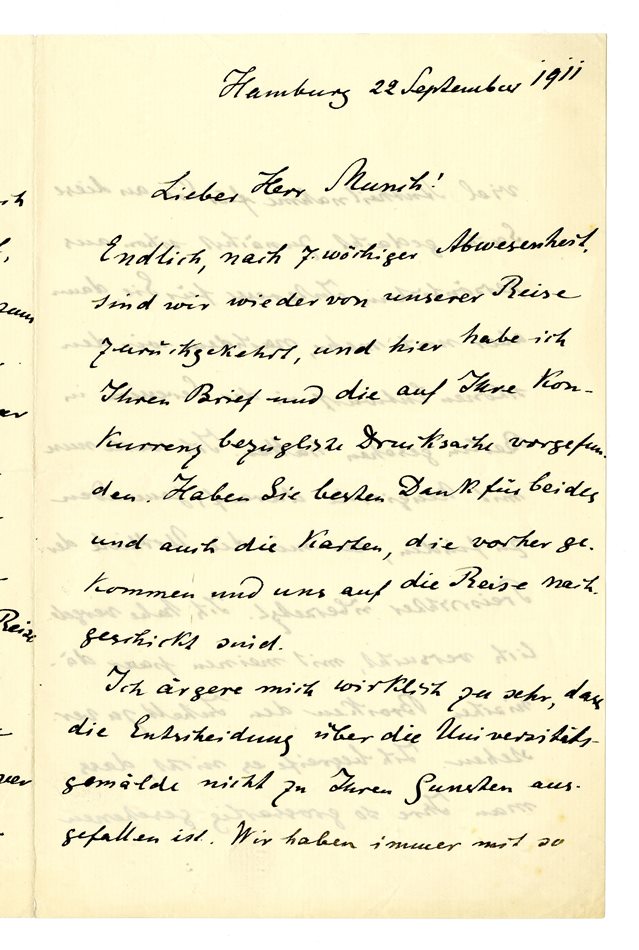 Hamburg 22 September 1911
Lieber Herr Munch!
Endlich, nach 7-wöchiger Abwesenheit,
sind wir wieder von unserer Reise
zurückgekehrt, und hier habe ich
Ihren Brief und die auf Ihre Kon-
kurrenz bezügliche Drucksache vorgefun-
den. Haben Sie besten Dank für beides
und auch die Karten, die vorher ge-
kommen und uns auf die Reise nach-
geschickt sind.
Ich ärgere mich wirklich zu sehr, dass
die Entscheidung über die Universitäts-
gemälde nicht zu Ihren Gunsten aus-
gefallen ist. Wir haben immer mit so
Reise